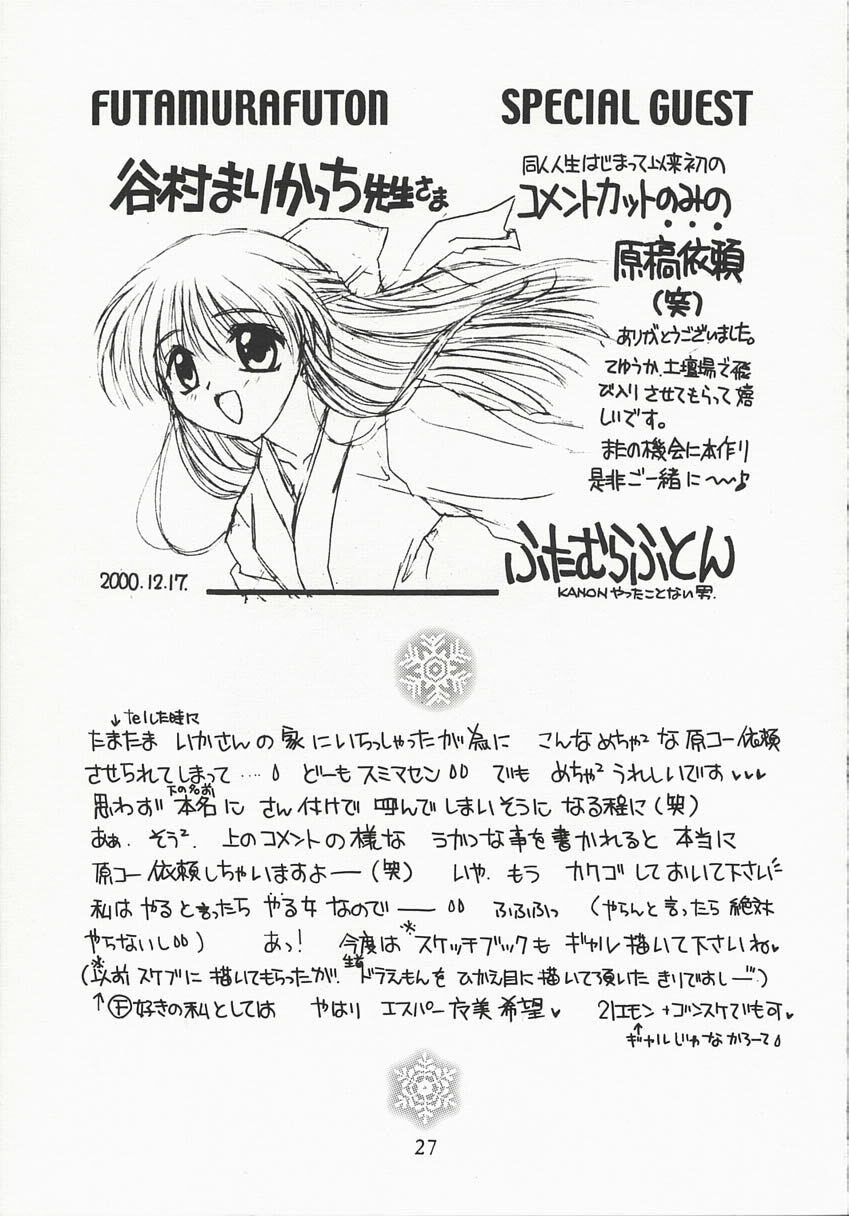 FUTAMURAFUTON
SPECIAL GUEST
谷村まりかっち先生さま
同人人生はじまって以来初の
コメントカットのみの
原稿依頼
(笑)
ありがとうございました。
てゆうか、土壇場で飛
び入りさせてもらって嬉
しいです。
またの機会に本作り
是非ご一緒に〜〜♪
ふたむらふとん
KANONやったことない男.
2000.12.17.
↓telした時に
たまたま いかさんの家にいらっしゃったが為に こんなめちゃ²な原コー依頼
させられてしまって‥‥ どーもスミマセン でも めちゃ²うれしいです♥♥♥
下の名前
思わず本名に さん付けで 呼んでしまいそうに なる程に(笑)
あぁ. そう². 上のコメントの様な うかつな事を書かれると 本当に
原コー依頼しちゃいますよ──(笑) いや. もう カクゴしておいて下さい
私は やると言ったら やる女なので── ふふふっ (やらんと言ったら 絶対
やらないし) あっ! 今度は※スケッチブックも ギャル描いて下さいね♥
(※以前スケブに描いてもらったが. ドラえもんを ひかえ目に描いて頂いた きりですし─)
↑Ⓕ好きの私としては やはり エスパー魔美希望♥ 21エモン+ゴンスケでも可♥
↑ギャルじゃなかろーて
27